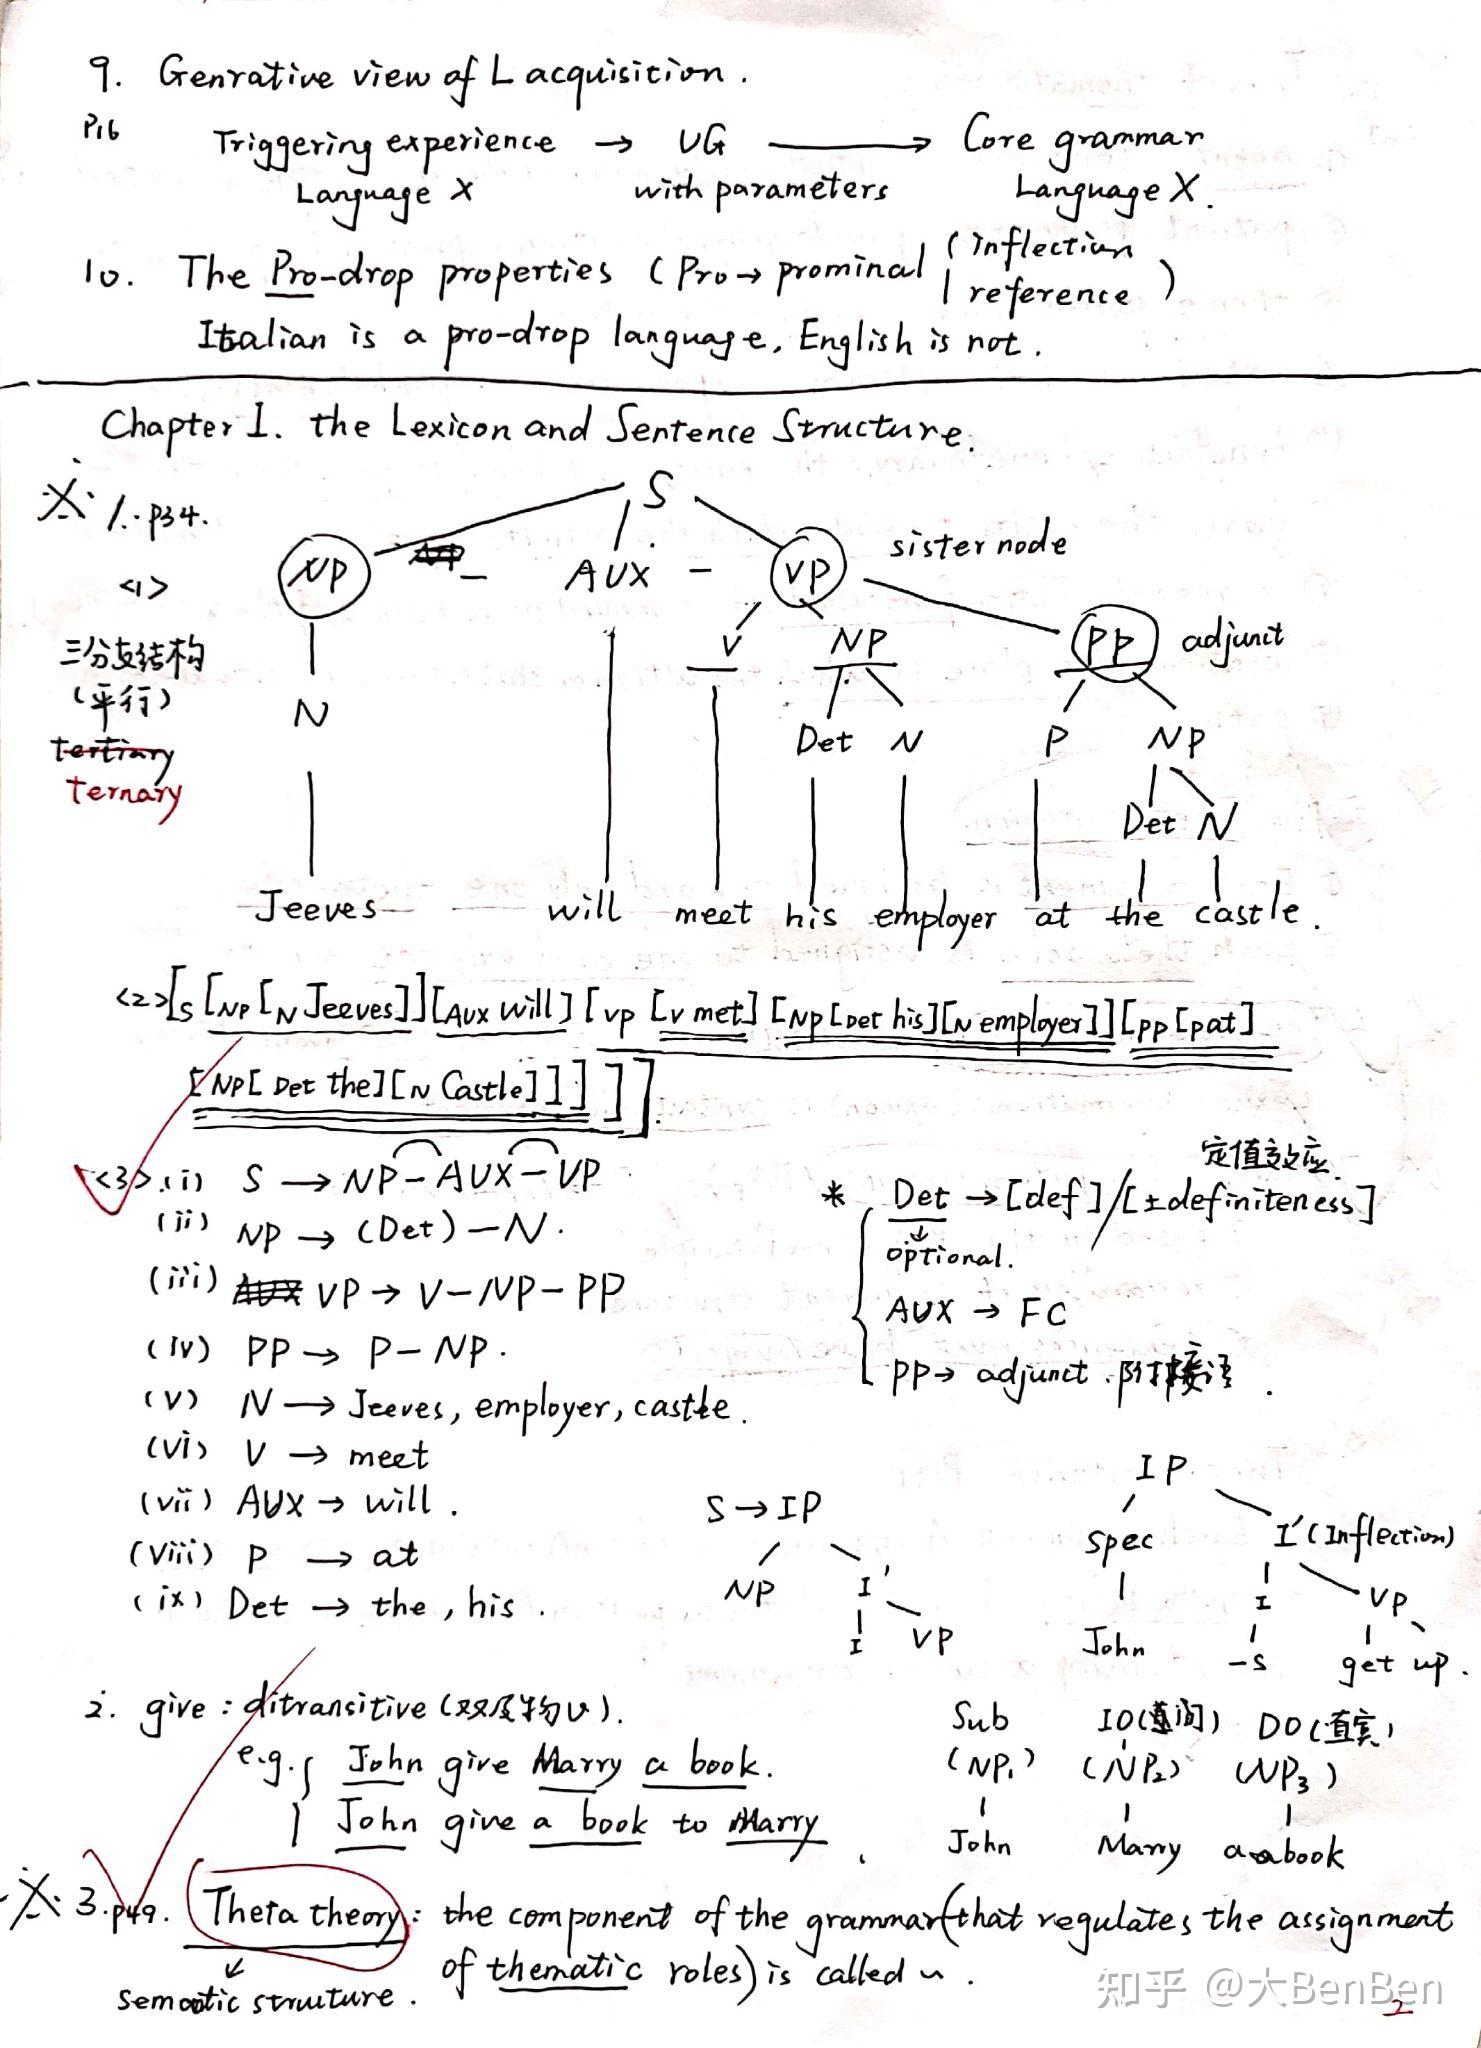 9. Genrative view of L acquisition.
P16
Triggering experience → UG → Core grammar
Language X with parameters Language X.
10. The Pro-drop properties (Pro→prominal (inflection
reference)
Italian is a pro-drop language, English is not.
Chapter 1. the Lexicon and Sentence Structure.
S
※ 1. P34.
NP — AUX — VP sister node
<1>
V NP PP adjunct
三分支结构
(平行)
N Det N P NP
tertiary
ternary
Det N
Jeeves will meet his employer at the castle.
<2>[S [NP [N Jeeves]][AUX will][VP [V met] [NP [Det his][N employer]][PP [P at]
[NP [Det the][N Castle]]]]]
<3>.(i) S → NP – AUX – VP
定值效应
* Det → [def] / [±definiteness]
(ii) NP → (Det) – N.
optional.
(iii) AUX VP → V – NP – PP
AUX → FC
(iv) PP → P – NP.
PP → adjunct. 附接语.
(v) N → Jeeves, employer, castle.
(vi) V → meet
(vii) AUX → will.
(viii) P → at
(ix) Det → the, his.
S → IP
NP I'
I VP
IP
Spec I' (Inflection)
I VP
John -s get up.
2. give : ditransitive (双及物v).
e.g. John give Marry a book.
John give a book to Marry.
Sub IO(间) DO(直宾)
(NP₁) (NP₂) (NP₃)
John Marry a book
※ 3. P49. Theta theory: the component of the grammar (that regulates the assignment
of thematic roles) is called ~.
semantic structure.
知乎 @大BenBen
2